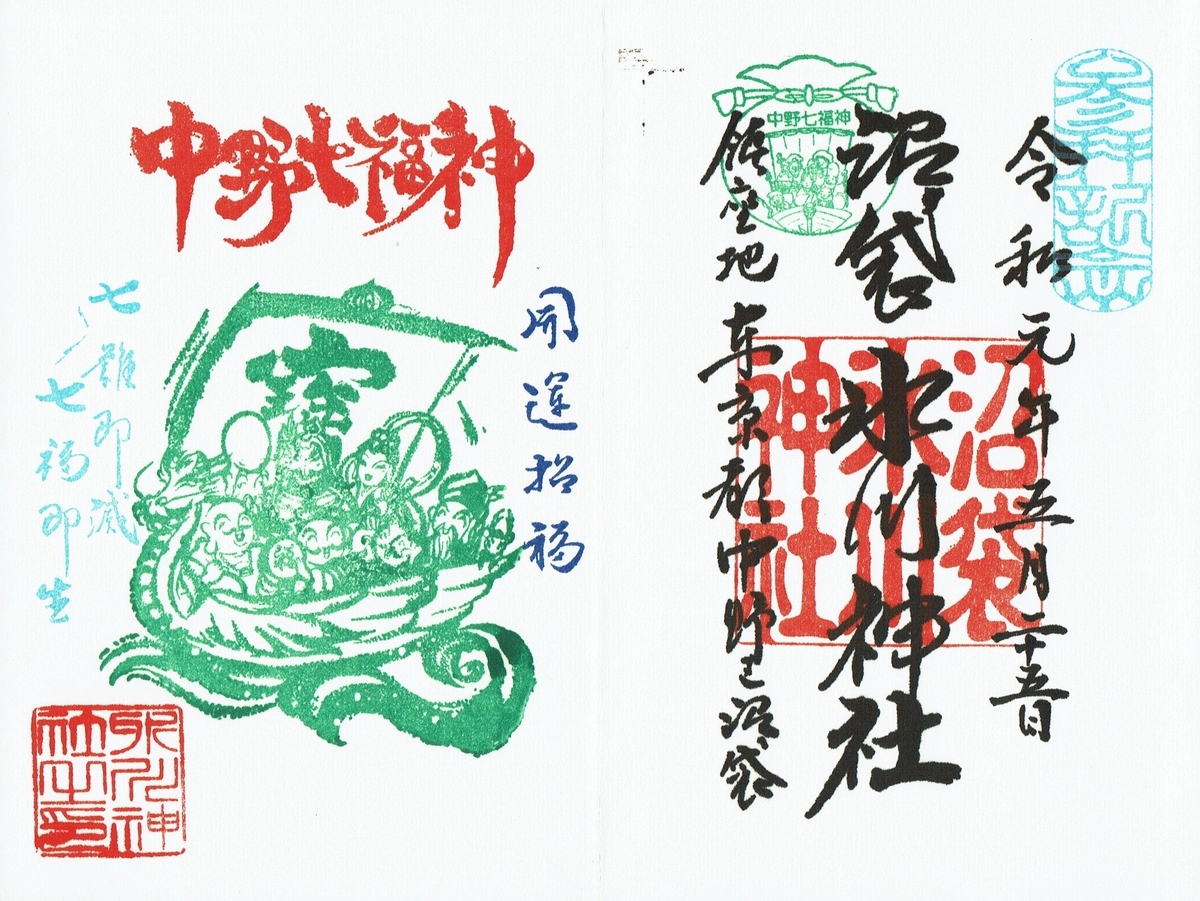 参拝記念
令和元年五月二十五日
沼袋氷川神社
沼袋
氷川
神社
中野七福神
鎮座地 东京都中野区沼袋
中野七福神
開運招福
宝
七難即滅
七福即生
氷川神
社之印